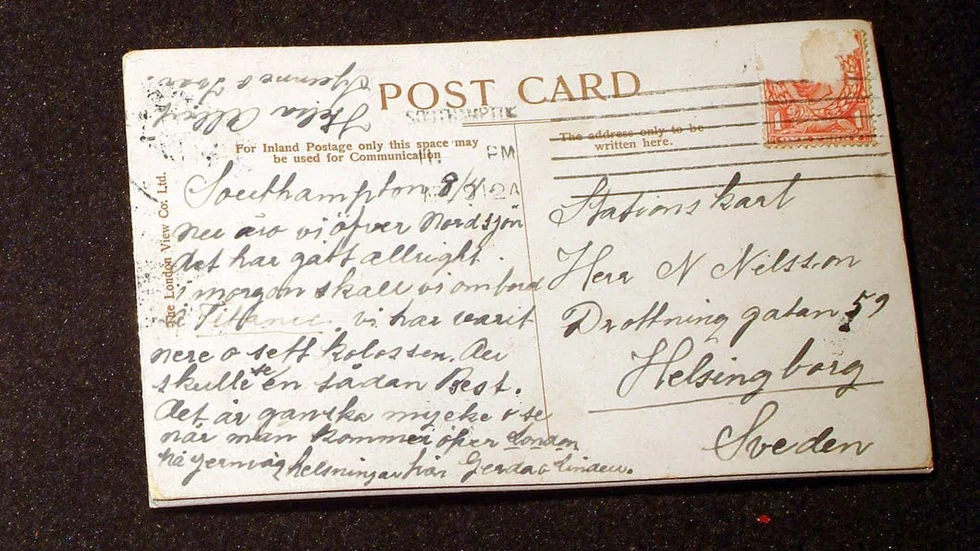 POST CARD
SOUTHAMPTON
For Inland Postage only this space may
be used for Communication
PM
The address only to be
written here.
The London View Co. Ltd.
Southampton 8/4
nu äro vi öfver Nordsjön
det har gått allright.
i morgon skall vi ombord
å Tittanic. vi har varit
nere o sett kolossen. du
skulle se en sådan Best.
det är ganska mycke o se
när man kommer öfver London
på jernväg helsningar från Gerda o Linden.
Albert
Stationskarl
Herr N Nilsson
Drottning gatan 59
Helsingborg
Sveden